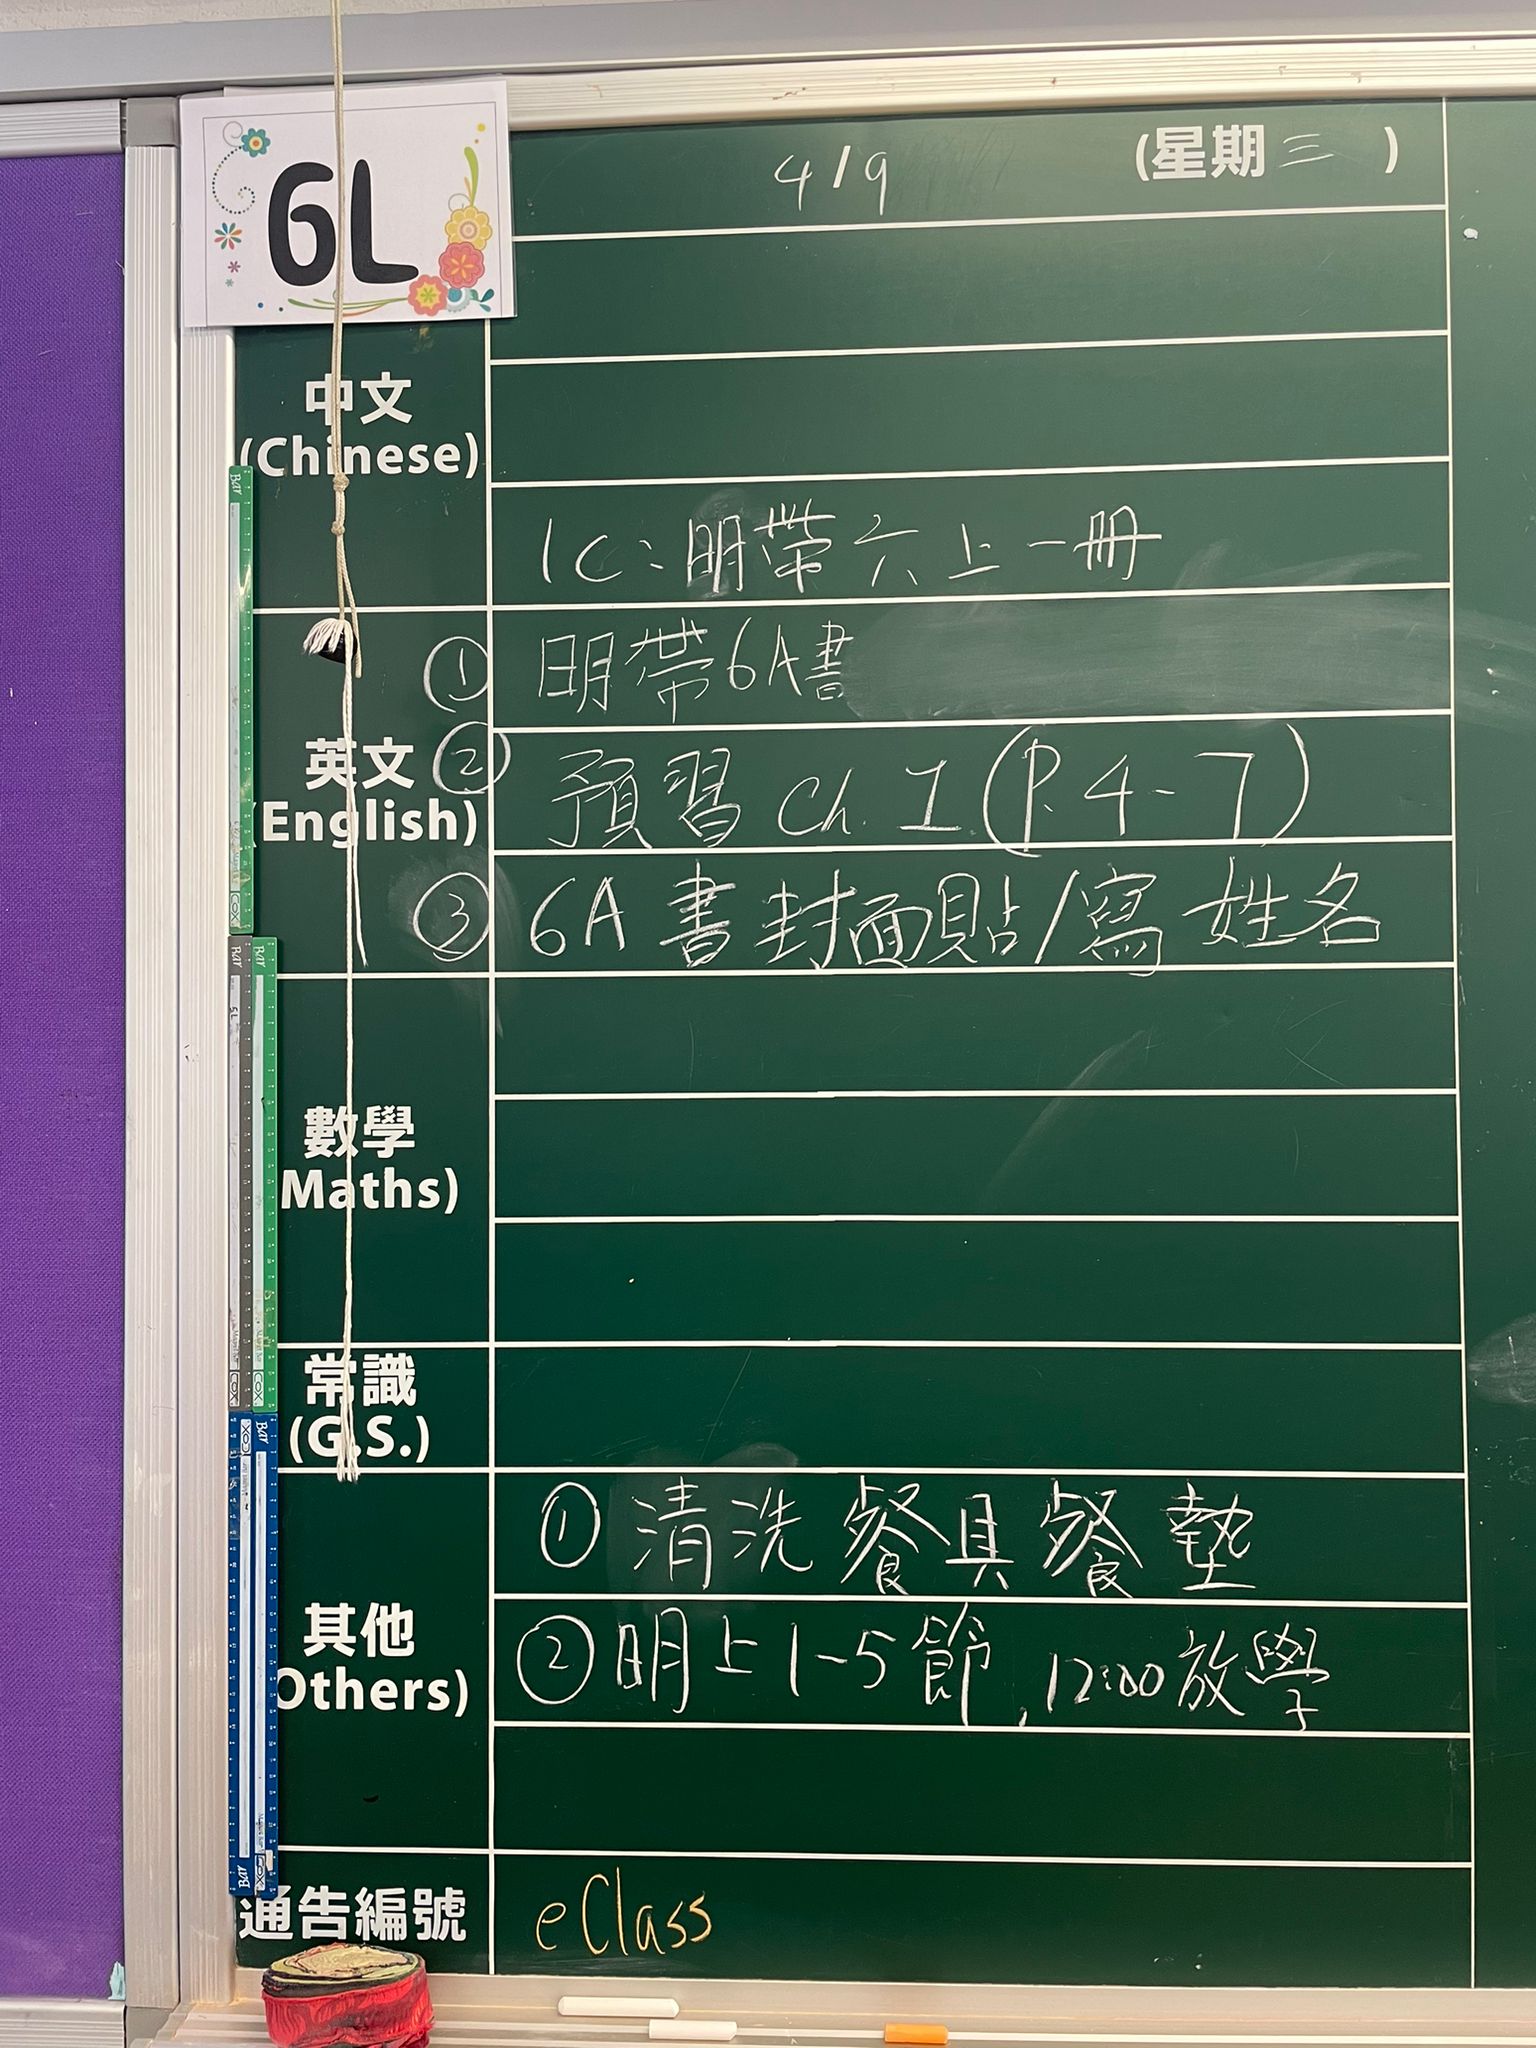 6L
4/9 (星期三)
中文
(Chinese)
1C:明帶六上一冊
英文
(English)
① 明帶6A書
② 預習 Ch. 1 (P. 4-7)
③ 6A書封面貼/寫姓名
數學
Maths)
常識
(G.S.)
其他
Others)
① 清洗餐具餐墊
② 明上1-5節,12:00放學
通告編號
eClass